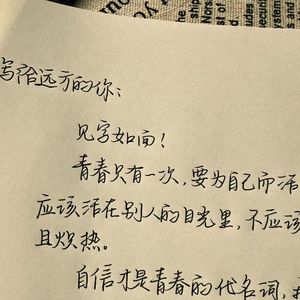 写给远方的你：
见字如面！
青春只有一次，要为自己而活
应该活在别人的目光里，不应该
且炽热。
自信才是青春的代名词，